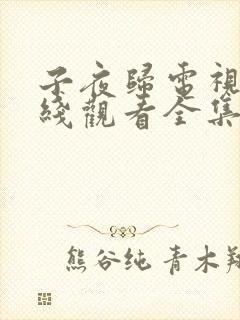 子夜歸電視
綫觀看全集
熊谷纯 青木翔